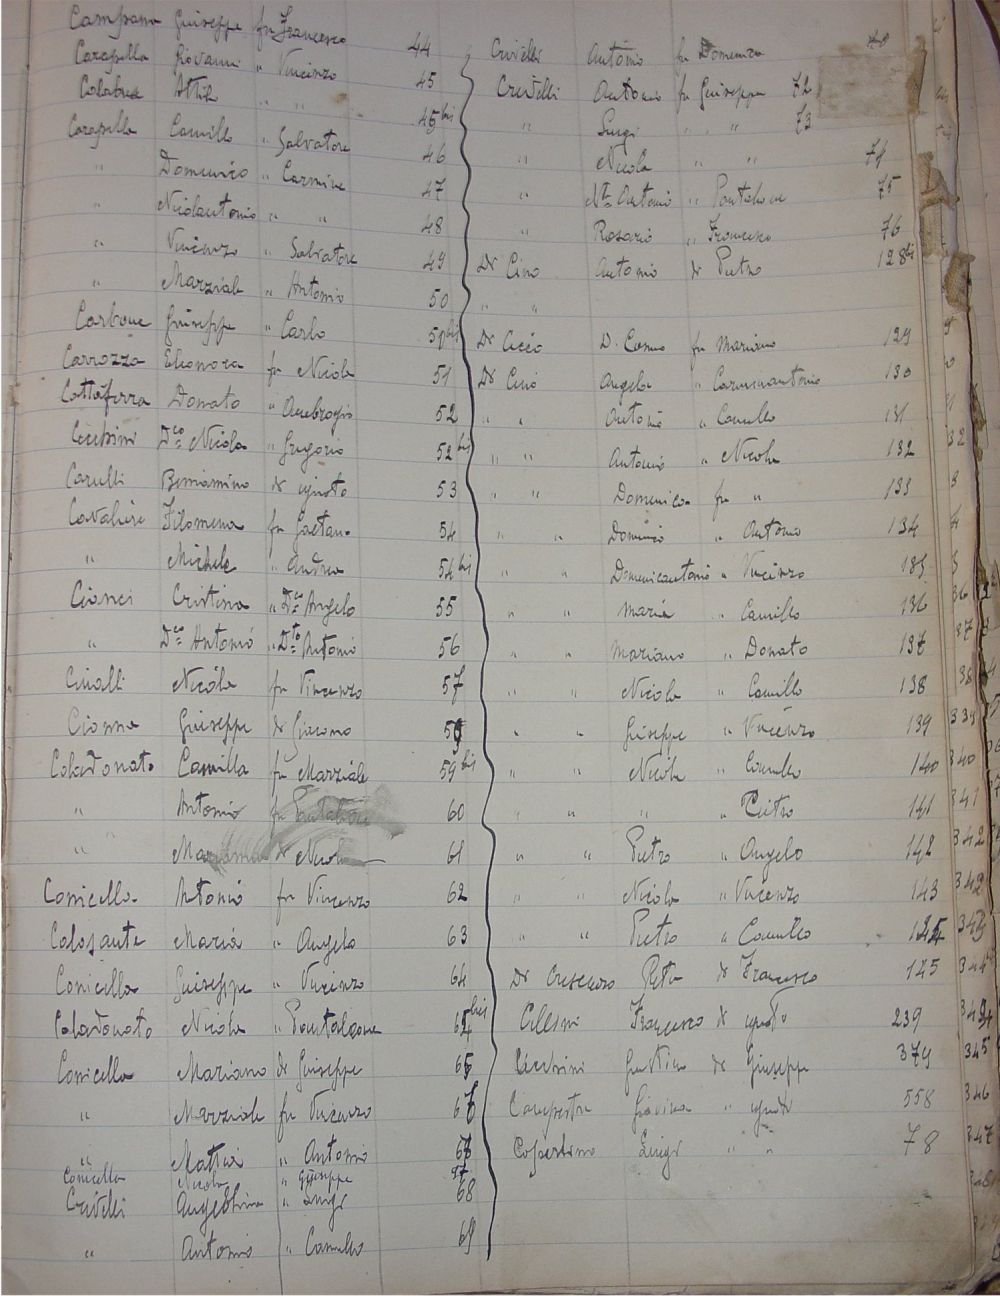 Campana Giuseppe fu Francesco 44
Carapella Giovanni " Vincenzo 45
Calabrese Attilio " " 45 bis
Carapella Camillo " Salvatore 46
" Domenico " Carmine 47
" Nicolantonio " " 48
" Vincenzo " Salvatore 49
" Marziale " Antonio 50
Carbone Giuseppe " Carlo 50 bis
Carrozza Eleonora fu Nicola 51
Cottaferra Donato " Ambrogio 52
Cecchini D.co Nicola " Gregorio 52 bis
Carulli Beniamino di ignoto 53
Cavaliere Filomena fu Gaetano 54
" Michele " Andrea 54 bis
Cianci Cristina " D.co Angelo 55
" D.co Antonio " D.to Antonio 56
Civalli Nicola fu Vincenzo 57
Cionna Giuseppe di Giacomo 59
Coladonato Camilla fu Marziale 59 bis
" Antonio fu Pantaleone 60
" Marianna di Nicola 61
Conicella Antonio fu Vincenzo 62
Colasante Maria " Angelo 63
Conicella Giuseppe " Vincenzo 64
Coladonato Nicola " Pantaleone 64 bis
Conicella Mariano di Giuseppe 65
" Marziale fu Vincenzo 67
" Mattia " Antonio 67
Conicella Nicola " Giuseppe
Crivelli Angiolina " Luigi 68
" Antonio " Camillo 69
Crivelli Antonio fu Domenico
Crivelli Antonio fu Giuseppe 72
" Luigi " " 73
" Nicola " " 74
" N.la Antonio " Pantaleone 75
" Rosario " Francesco 76
Di Cino Antonio di Pietro 128 bis
" "
Di Cicco D. Cosmo fu Mariano 129
Di Cino Angela " Carminantonio 130
" " Antonio " Camillo 131
" " Antonio " Nicola 132
" " Domenica fu " 133
" " Domenico " Antonio 134
" " Domenicantonio " Vincenzo 135
" " Maria " Camillo 136
" " Mariano " Donato 137
" " Nicola " Camillo 138
" " Giuseppe " Vincenzo 139
" " Nicola " Camillo 140
" " " " Pietro 141
" " Pietro " Angelo 142
" " Nicola " Vincenzo 143
" " Pietro " Camillo
Di Crescenzo Pietro di Francesco 145
Cillini Francesco di ignoto 239
Cecchini Giustino di Giuseppe 379
Campestre Giovina " ignoti 558
Copertino Luigi " " 78
340
341
342
345
346
347